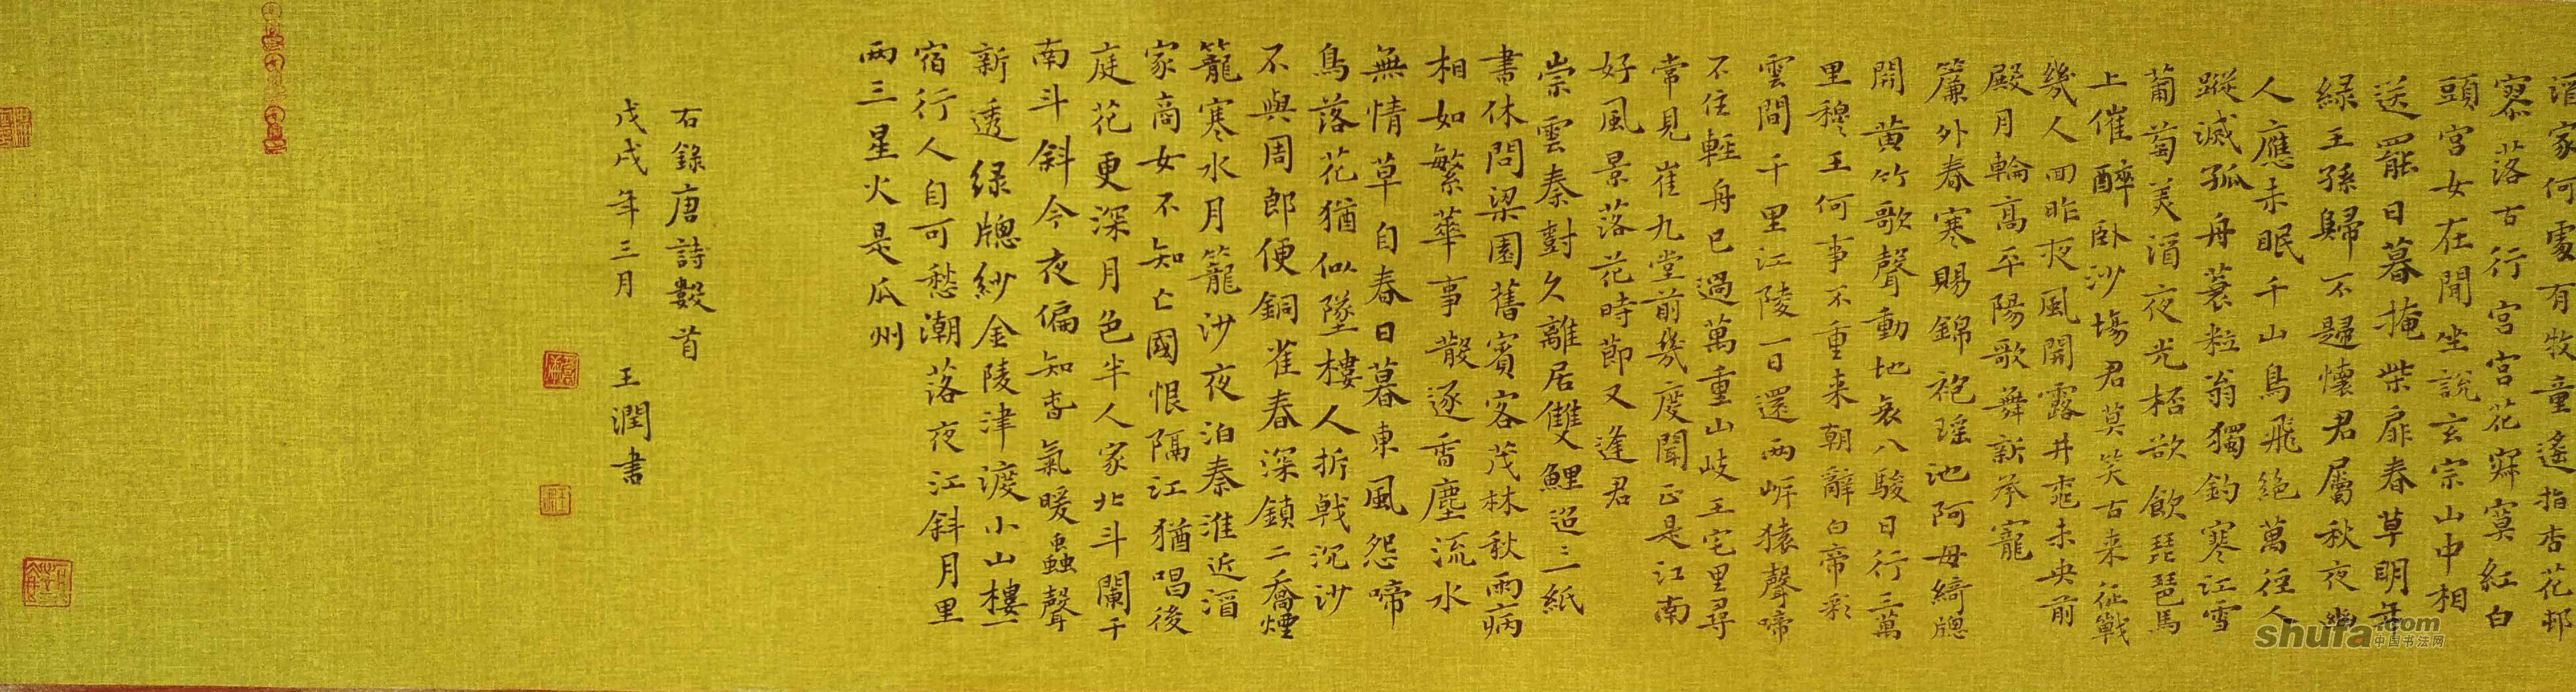 酒家何處有牧童遙指杏花邨
寥落古行宮宮花寂寞紅白
頭宮女在閒坐說玄宗山中相
送罷日暮掩柴扉春草明年
綠王孫歸不歸懷君屬秋夜
人應未眠千山鳥飛絕萬徑人
蹤滅孤舟蓑粒翁獨釣寒江雪
葡萄美酒夜光桮欲飲琵琶馬
上催醉臥沙場君莫笑古来征戰
幾人回昨夜風開露井桃未央前
殿月輪高平陽歌舞新承寵
簾外春寒賜錦袍瑤池阿母綺牕
開黄竹歌聲動地哀八駿日行三萬
里穆王何事不重来朝辭白帝彩
雲間千里江陵一日還两岍猿聲啼
不住輕舟已過萬重山岐王宅里尋
常見崔九堂前幾度聞正是江南
好風景落花時節又逢君
崇雲秦對久離居雙鯉迢二紙
書休問梁園舊賓客茂林秋雨病
相如繁華事散逐香塵流水
無情草自春日暮東風怨啼
鳥落花猶似墜樓人折戟沉沙
不與周郎便銅雀春深鎖二喬煙
籠寒水月籠沙夜泊秦淮近酒
家商女不知亡國恨隔江猶唱後
庭花更深月色半人家北斗闌干
南斗斜今夜偏知春氣暖蟲聲
新透绿牕紗金陵津渡小山樓一
宿行人自可愁潮落夜江斜月里
两三星火是瓜州
右錄唐詩數首
戊戌年三月 王潤書
shufa.com
中国书法网